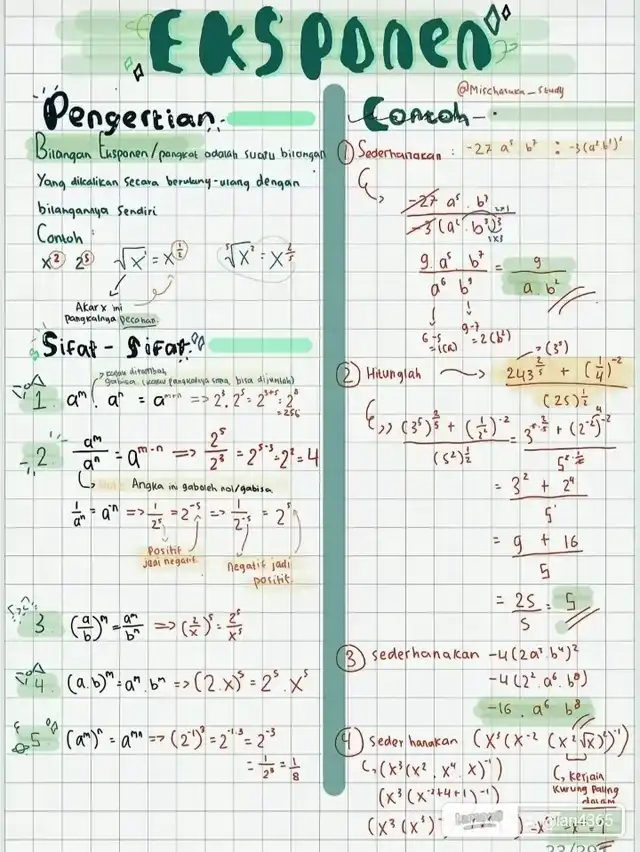 EKSPONEN
@Mischaruka_study
Pengertian
Bilangan Eksponen/pangkat adalah suatu bilangan
Yang dikalikan secara berulang-ulang dengan
bilangannya sendiri
Contoh
x² 2⁵ √x = x^(1/2) ⁵√x² = x^(2/5)
Akar x ini
pangkatnya pecahan
Sifat - Sifat
1. a^m . a^n = a^(m+n) => 2³ . 2⁵ = 2^(3+5) = 2⁸
= 256
2. a^m/a^n = a^(m-n) => 2⁵/2³ = 2^(5-3) = 2² = 4
Angka ini gaboleh nol/gabisa
1/a^n = a^n => 1/2⁵ = 2^-5 => 1/2^-5 = 2⁵
Positif
jadi negatif
Negatif jadi
positif.
3 (a/b)^n = a^n/b^n => (2/x)⁵ = 2⁵/x⁵
4 (a.b)^m = a^n . b^n => (2.x)⁵ = 2⁵ . x⁵
5 (a^m)^n = a^mn => (2^-1)³ = 2^(-1.3) = 2^-3
= 1/2³ = 1/8
Contoh
1 Sederhanakan : -27 a⁵ b⁷ :
-27 a⁵ . b⁷
-3 (a² . b³)³
9 . a⁵ . b⁷ / a⁶ b⁹ = 9 / a . b²
6-5
= 1(a)
9-7
= 2(b²)
2 Hitunglah 243^(2/5) + (1/4)^-2
(25)^(1/2)
(3⁵)
(3⁵)^(2/5) + (1/2²)^-2 / (5²)^(1/2)
= 3² + 2⁴
5
= 9 + 16
5
= 25/5 = 5
3 Sederhanakan -4(2a³ . b⁴)²
-4(2² . a⁶ . b⁸)
-16 . a⁶ b⁸
4 Sederhanakan (x³(x^-2 (x²√x)²)^-1)
kerjain
kurung paling
dalam